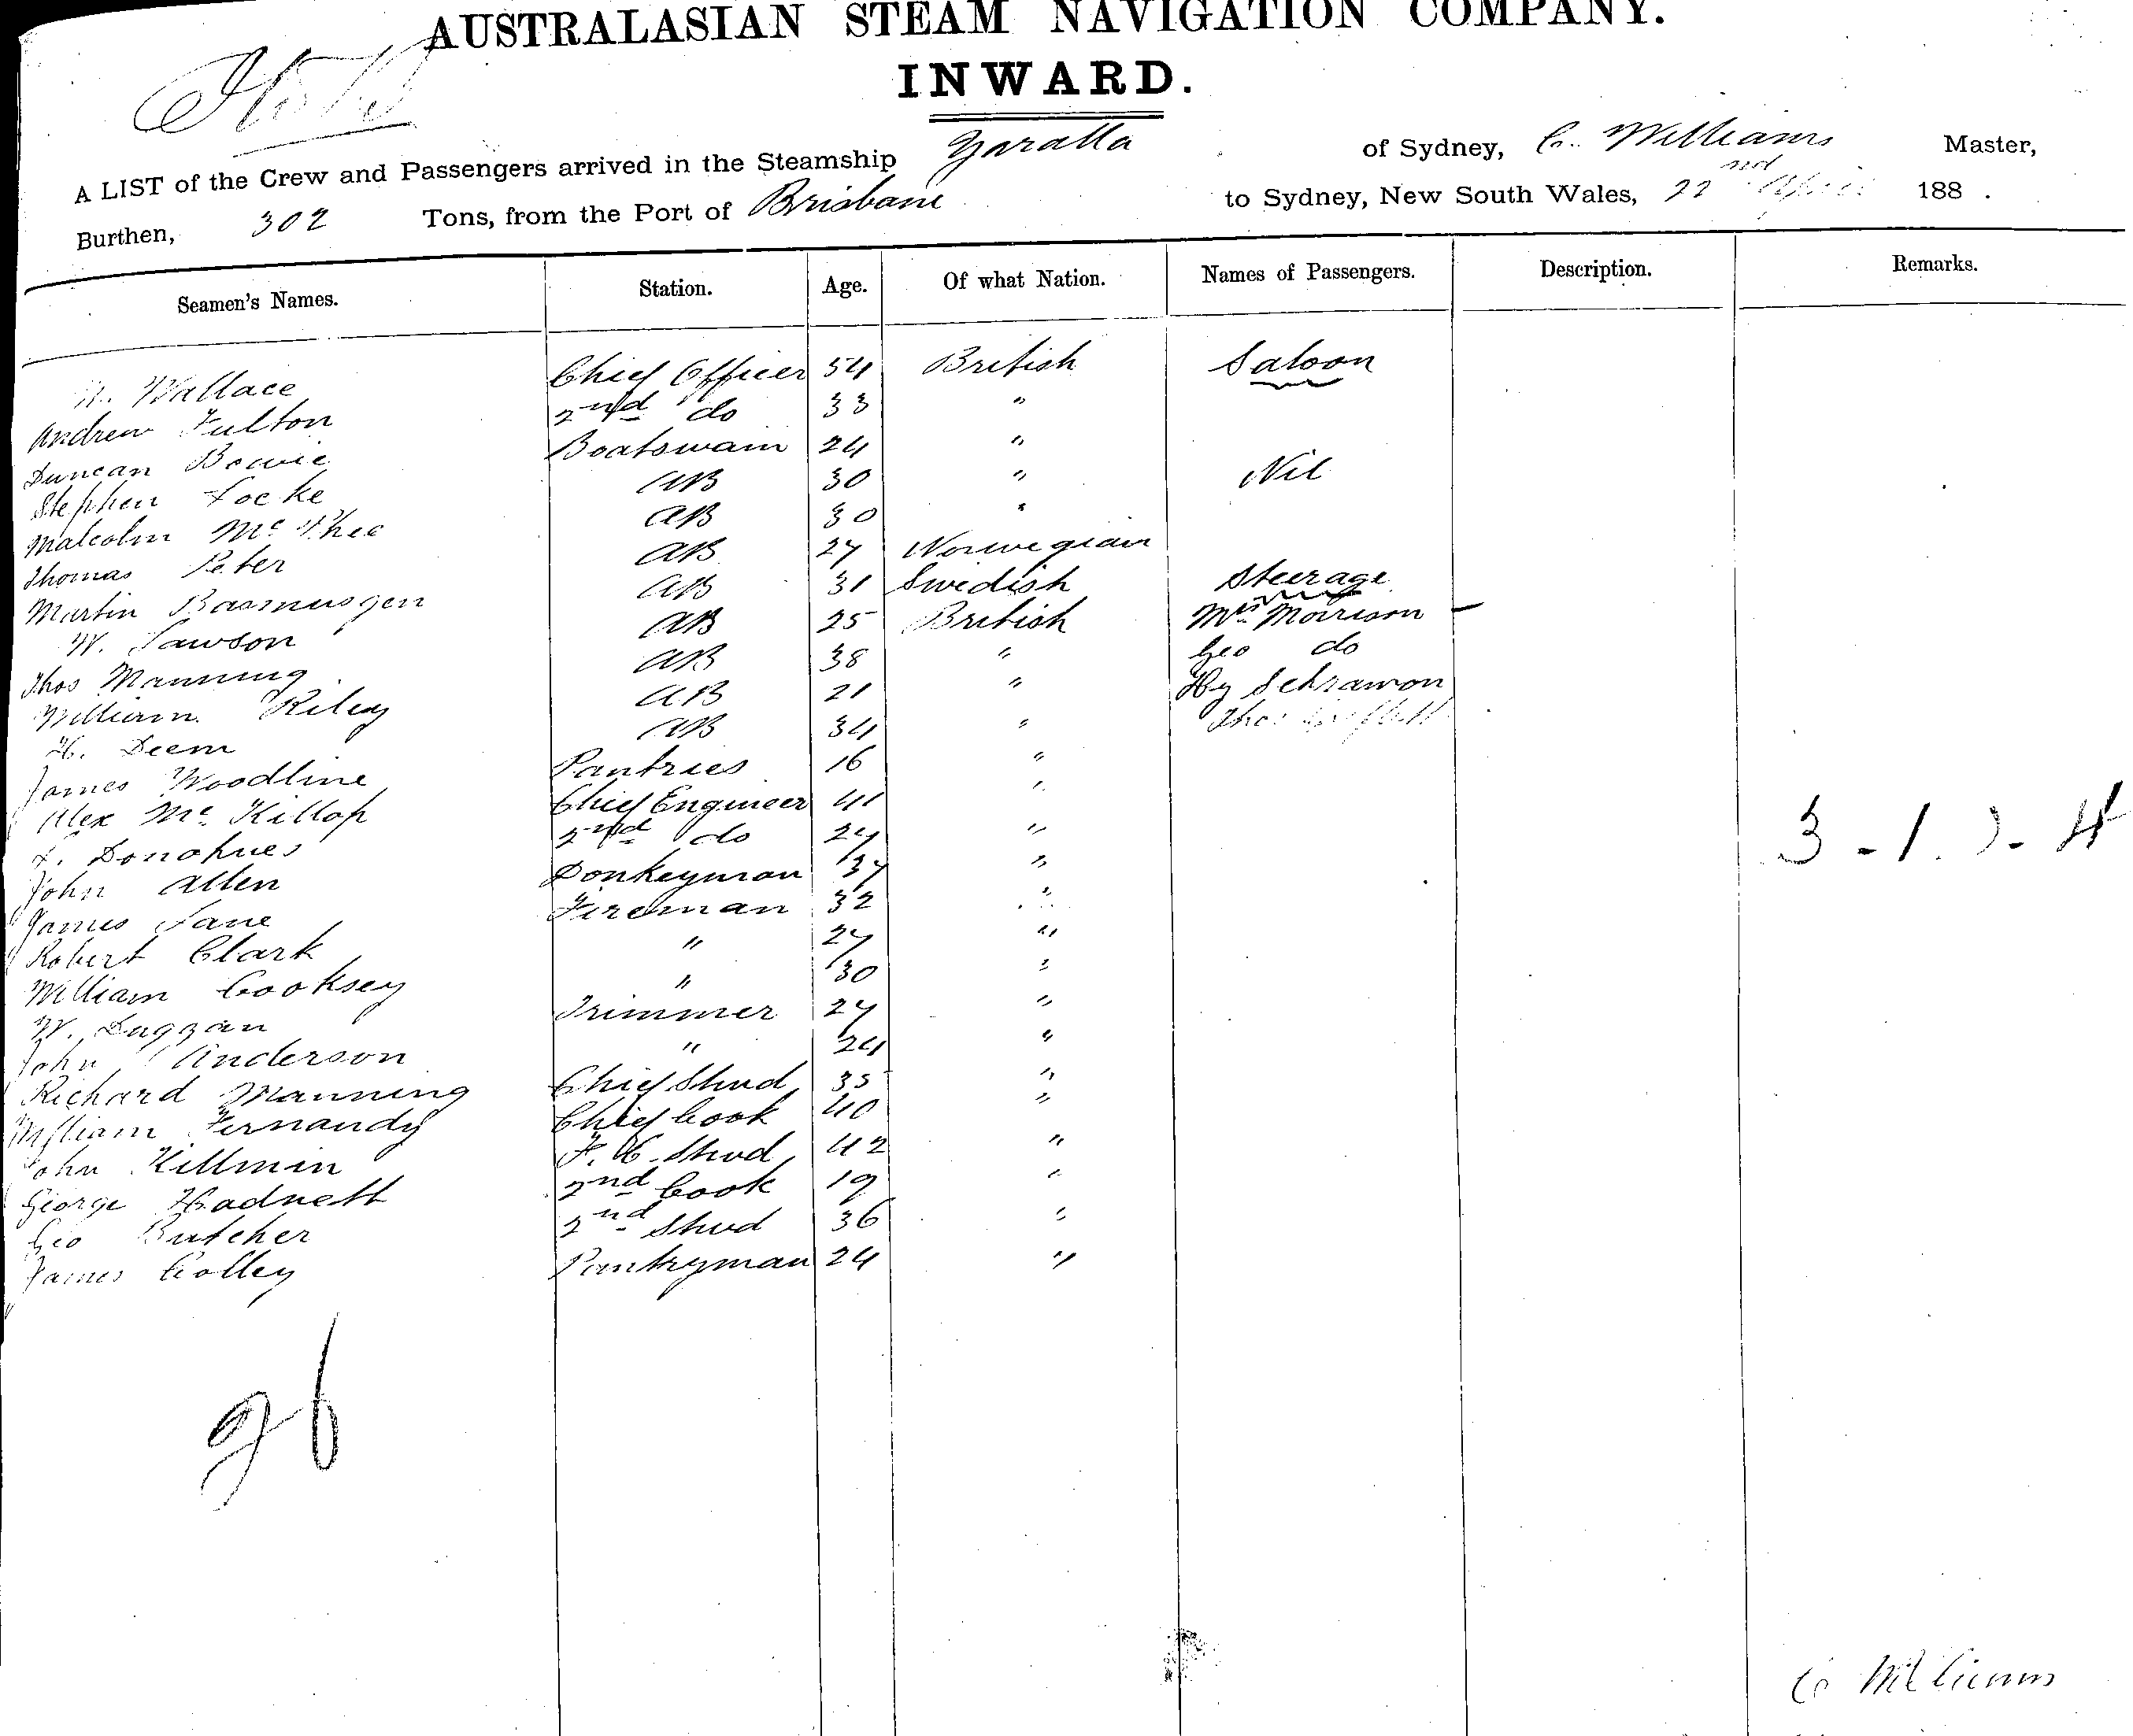 AUSTRALASIAN STEAM NAVIGATION COMPANY.
INWARD.
A LIST of the Crew and Passengers arrived in the Steamship Yaralla of Sydney, C. Williams Master,
Burthen, 302 Tons, from the Port of Brisbane to Sydney, New South Wales, 22nd April 188 .
Seamen's Names. Station. Age. Of what Nation. Names of Passengers. Description. Remarks.
Wallace Chief Officer 54 British Saloon
Andrew Fulton 2nd do 33 "
Duncan Bowie Boatswain 24 "
Stephen Locke AB 30 " Nil
Malcolm McPhee AB 30 "
Thomas Peter AB 27 Norwegian
Martin Rasmusgen AB 31 Swedish Steerage
W. Lawson AB 25 British Mrs Morrison
Thos Manning AB 38 " Geo do
William Riley AB 21 " Hy Schrawon
H. Deem AB 34 " Thos
James Woodline Pantries 16 "
Alex McKillop Chief Engineer 41 "
Donohues 2nd do 27 "
John Allen Donkeyman 37 "
James Lane Fireman 32 "
Robert Clark " 27 "
William Cooksey " 30 "
W. Duggan Trimmer 27 "
John Anderson " 24 "
Richard Manning Chief Stwd 35 "
William Fernandy Chief Cook 40 "
John Killmin F. C. Stwd 42 "
George Hadnett 2nd Cook 19 "
Geo Butcher 2nd Stwd 36 "
James Colley Pantryman 24 "
26
C Williams